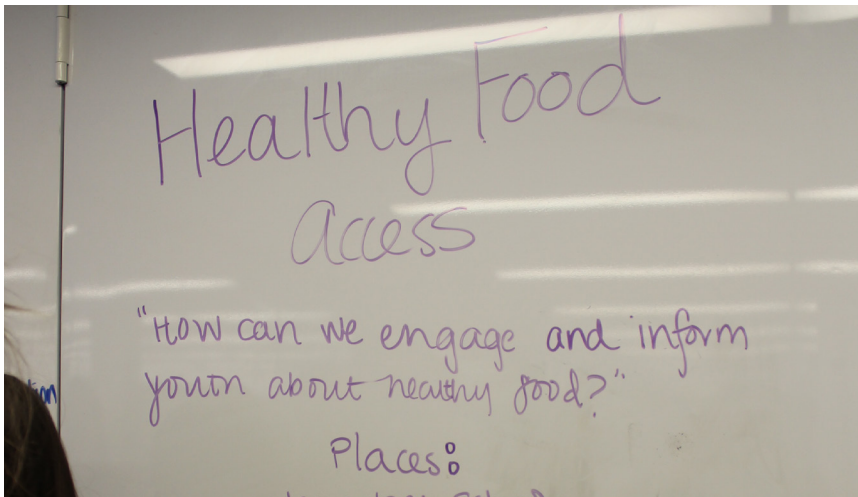 Healthy Food
Access
"How can we engage and inform
youth about healthy food?"
Places: